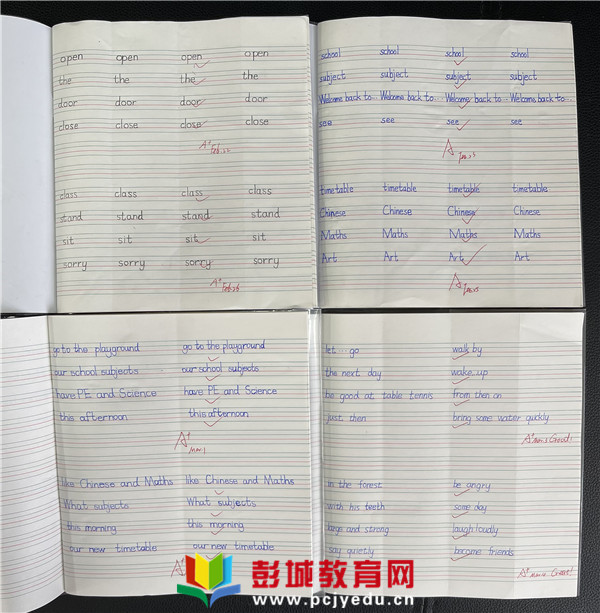 open open open open
the the the the
door door door door
close close close close
A+ Feb.22
class class class class
stand stand stand stand
sit sit sit sit
sorry sorry sorry sorry
A+ Feb.26
school school school school
subject subject subject subject
Welcome back to… Welcome back to… Welcome back to… Welcome back to…
see see see see
A
timetable timetable timetable timetable
Chinese Chinese Chinese Chinese
Maths Maths Maths Maths
Art Art Art Art
A
go to the playground go to the playground
our school subjects our school subjects
have PE and Science have PE and Science
this afternoon this afternoon
A+ Mar.1
like Chinese and Maths like Chinese and Maths
What subjects What subjects
this morning this morning
our new timetable our new timetable
A
let…go walk by
the next day wake up
be good at table tennis from then on
just then bring some water quickly
A+ Great!
in the forest be angry
with his teeth some day
large and strong laugh loudly
say quietly become friends
A+ Great!
彭城教育网
www.pcjyedu.cn